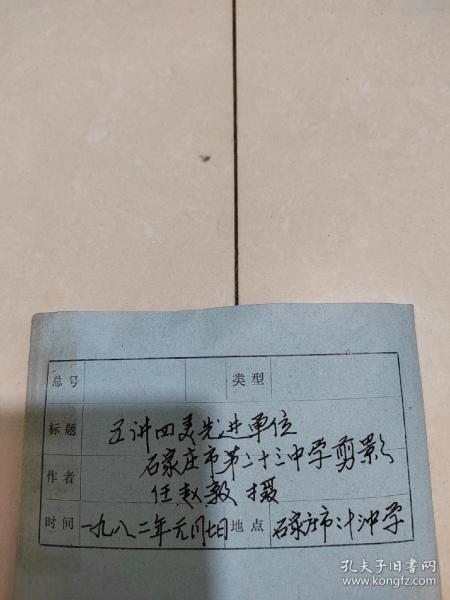 总号 类型
标题 五讲四美先进单位
石家庄市第二十三中学剪影
作者 任赵敦 摄
时间 一九八二年元月七日 地点 石家庄市
孔夫子旧书网
www.kongfz.com